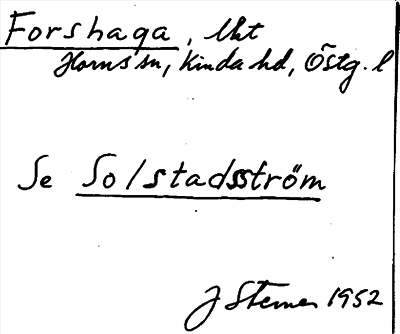 Forshaga, lht
Horns sn, Kinda hd, Östg. l
Se Solstadsström
J Sterner 1952